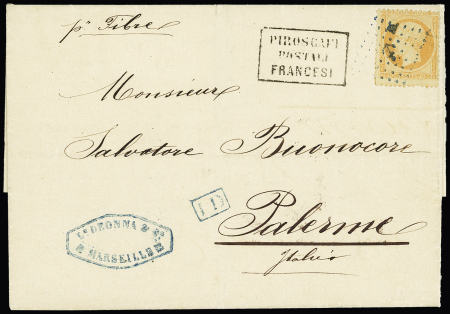 pr Tibre
PIROSCAFI
POSTALI
FRANCESI
Monsieur
Salvatore Buonocore
PD
Palerme
Italie
Ls DEONNA & Cie
MARSEILLE